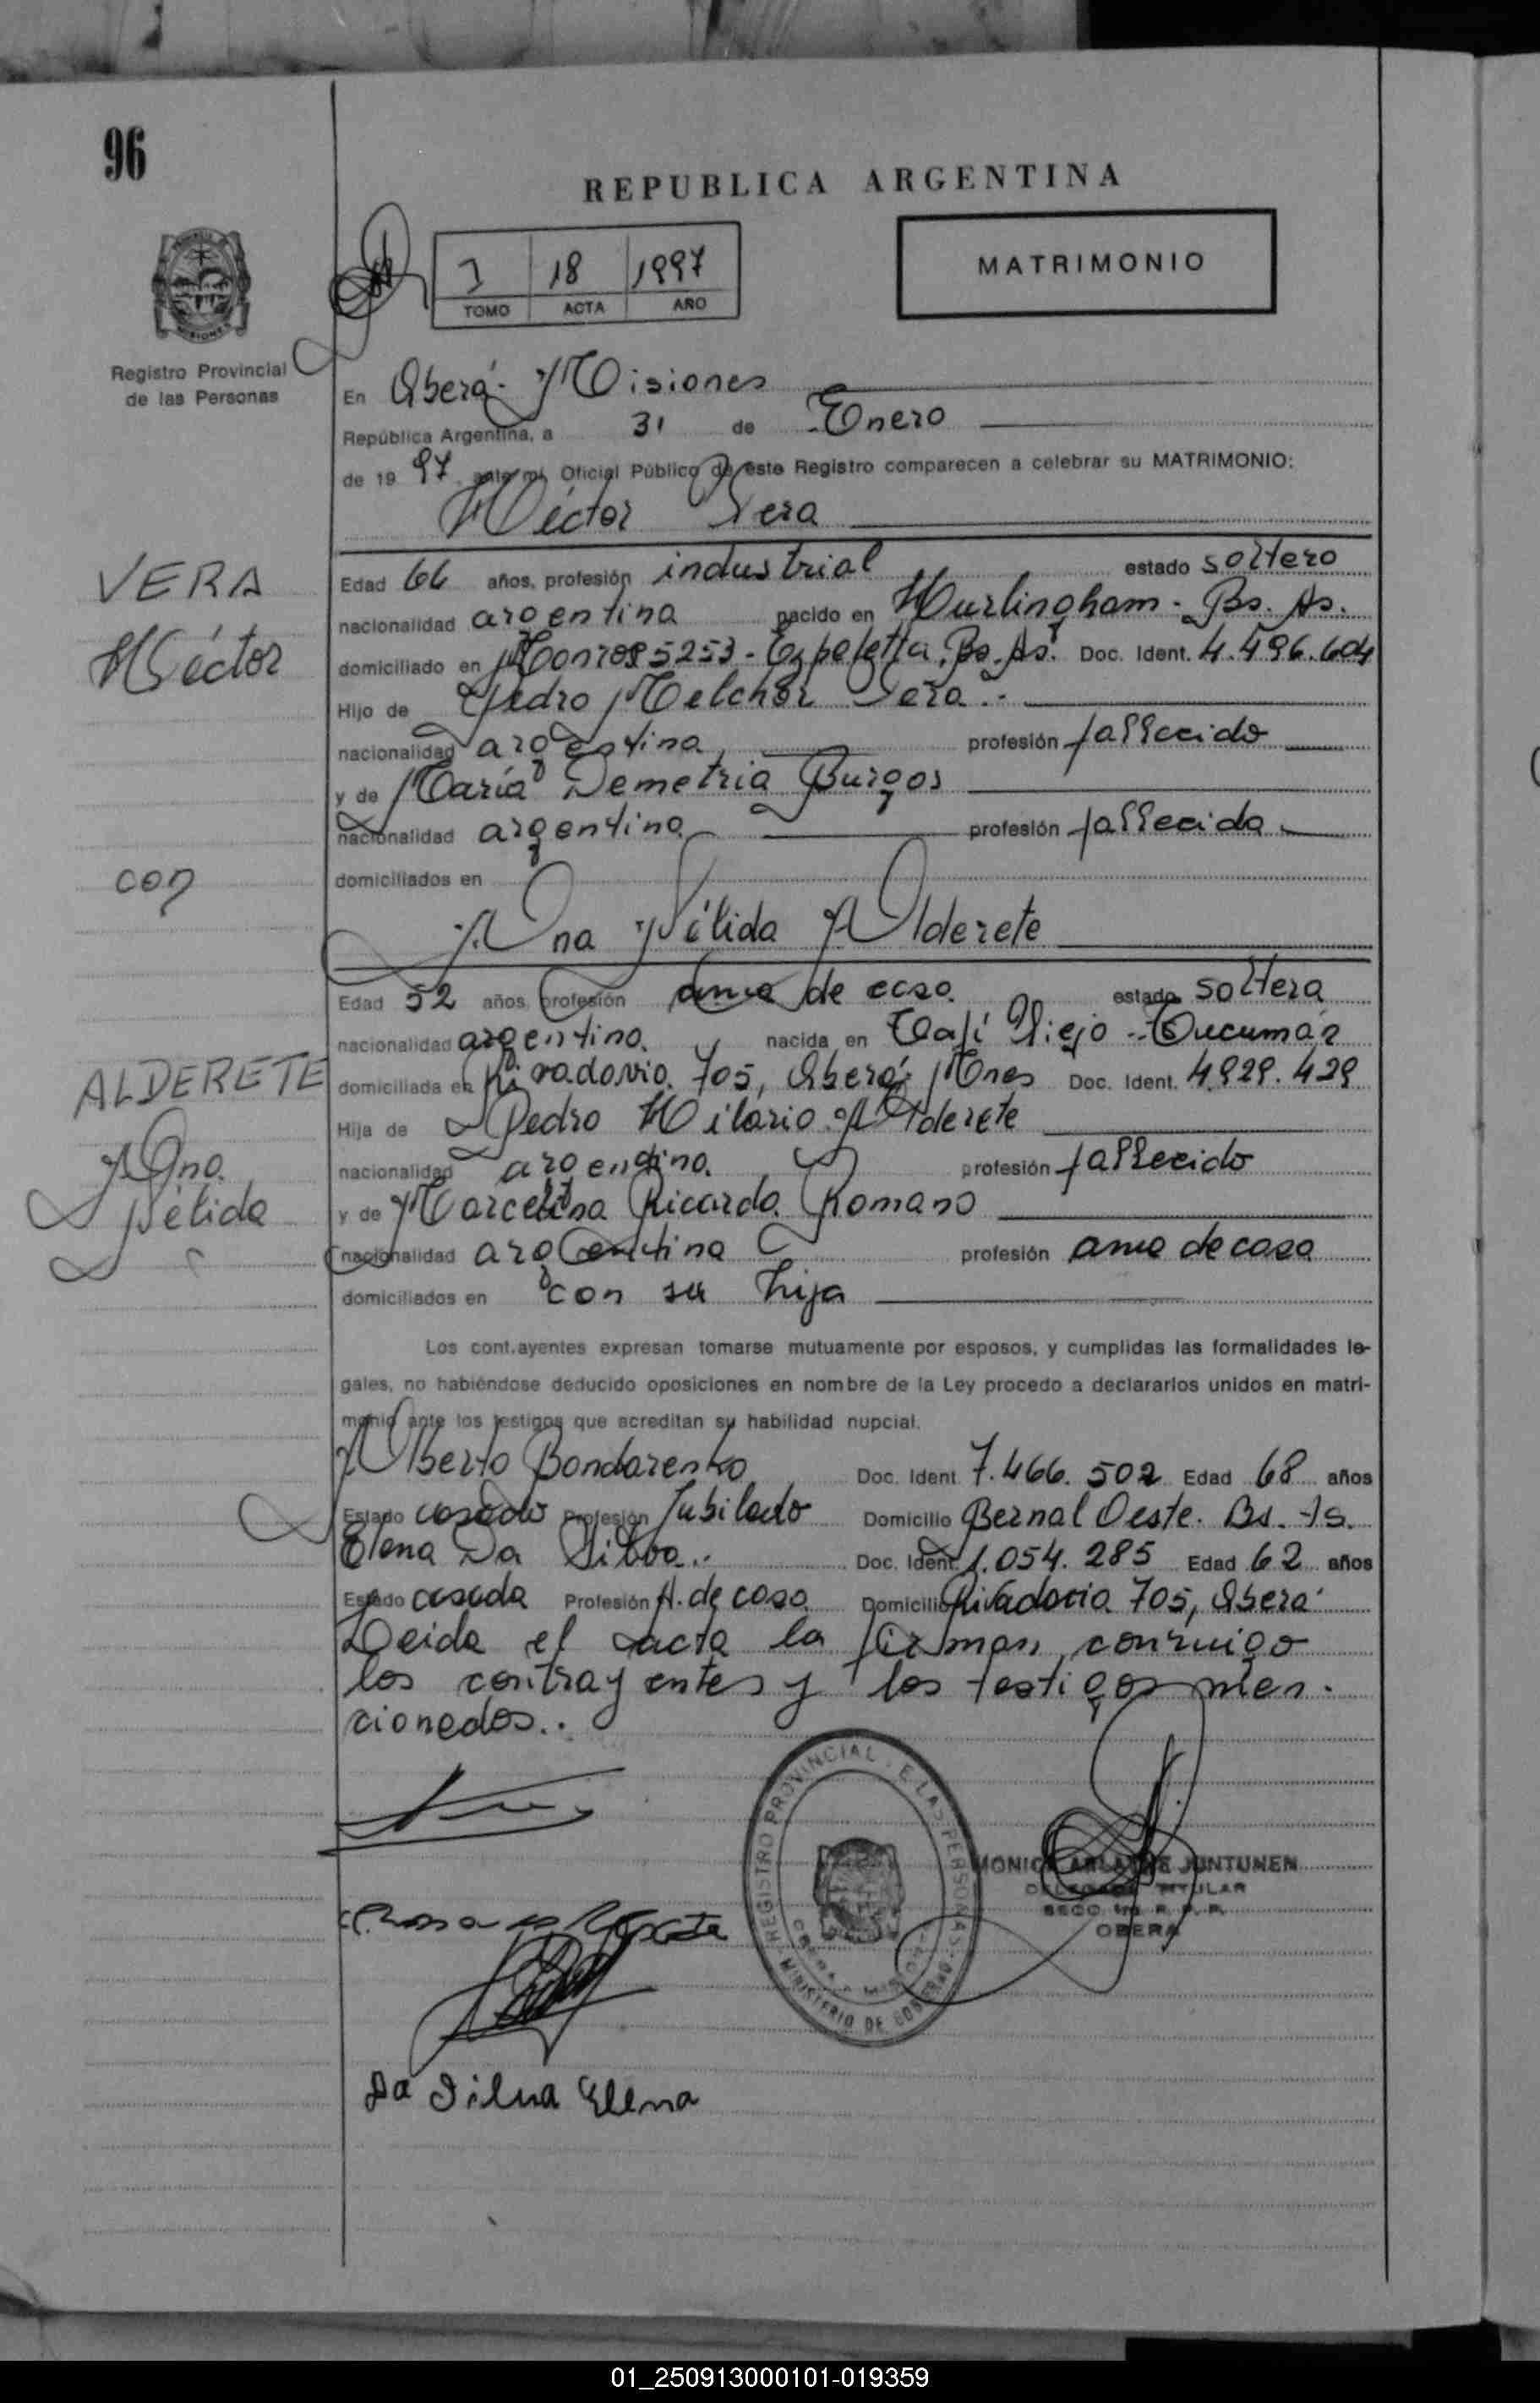 96
REPUBLICA ARGENTINA
1 18 1997
TOMO ACTA AÑO
MATRIMONIO
Registro Provincial
de las Personas
En Oberá - Misiones
República Argentina, a 31 de Enero
de 19 97 ante mí, Oficial Público de este Registro comparecen a celebrar su MATRIMONIO:
Héctor Vera
VERA
Héctor
con
ALDERETE
Ana
Nélida
Edad 66 años, profesión industrial estado soltero
nacionalidad argentina nacido en Hurlingham - Bs. As.
domiciliado en 5253 - Ezpeletta, Bs. As. Doc. Ident. 4.496.604
Hijo de Pedro Melchor Vera.-
nacionalidad argentina profesión fallecido
y de María Demetria Burgos
nacionalidad argentina profesión fallecida
domiciliados en
Ana Nélida Alderete
Edad 52 años, profesión ama de casa estado soltera
nacionalidad argentina nacida en Tafí Viejo - Tucumán
domiciliada en Rivadavia 705, Oberá, Mnes Doc. Ident. 4.929.429
Hija de Pedro Hilario Alderete
nacionalidad argentina profesión fallecido
y de Marcelina Ricarda Romano
nacionalidad argentina profesión ama de casa
domiciliados en con su hija
Los cont.ayentes expresan tomarse mutuamente por esposos, y cumplidas las formalidades le-
gales, no habiéndose deducido oposiciones en nombre de la Ley procedo a declararlos unidos en matri-
monio ante los testigos que acreditan su habilidad nupcial.
Alberto Bondarenko Doc. Ident. 7.466.502 Edad 68 años
Estado casado Profesión Jubilado Domicilio Bernal Oeste. Bs. As.
Elena Da Silva.. Doc. Ident. 1.054.285 Edad 62 años
Estado casada Profesión A. de casa Domicilio Rivadavia 705, Oberá
Leida el acta la firman conmigo
los contrayentes y los testigos men-
cionados..
REGISTRO PROVINCIAL DE LAS PERSONAS
MINISTERIO DE GOBIERNO
JUNTUNEN
TITULAR
OBERA
Da Silva Elena
01_250913000101-019359